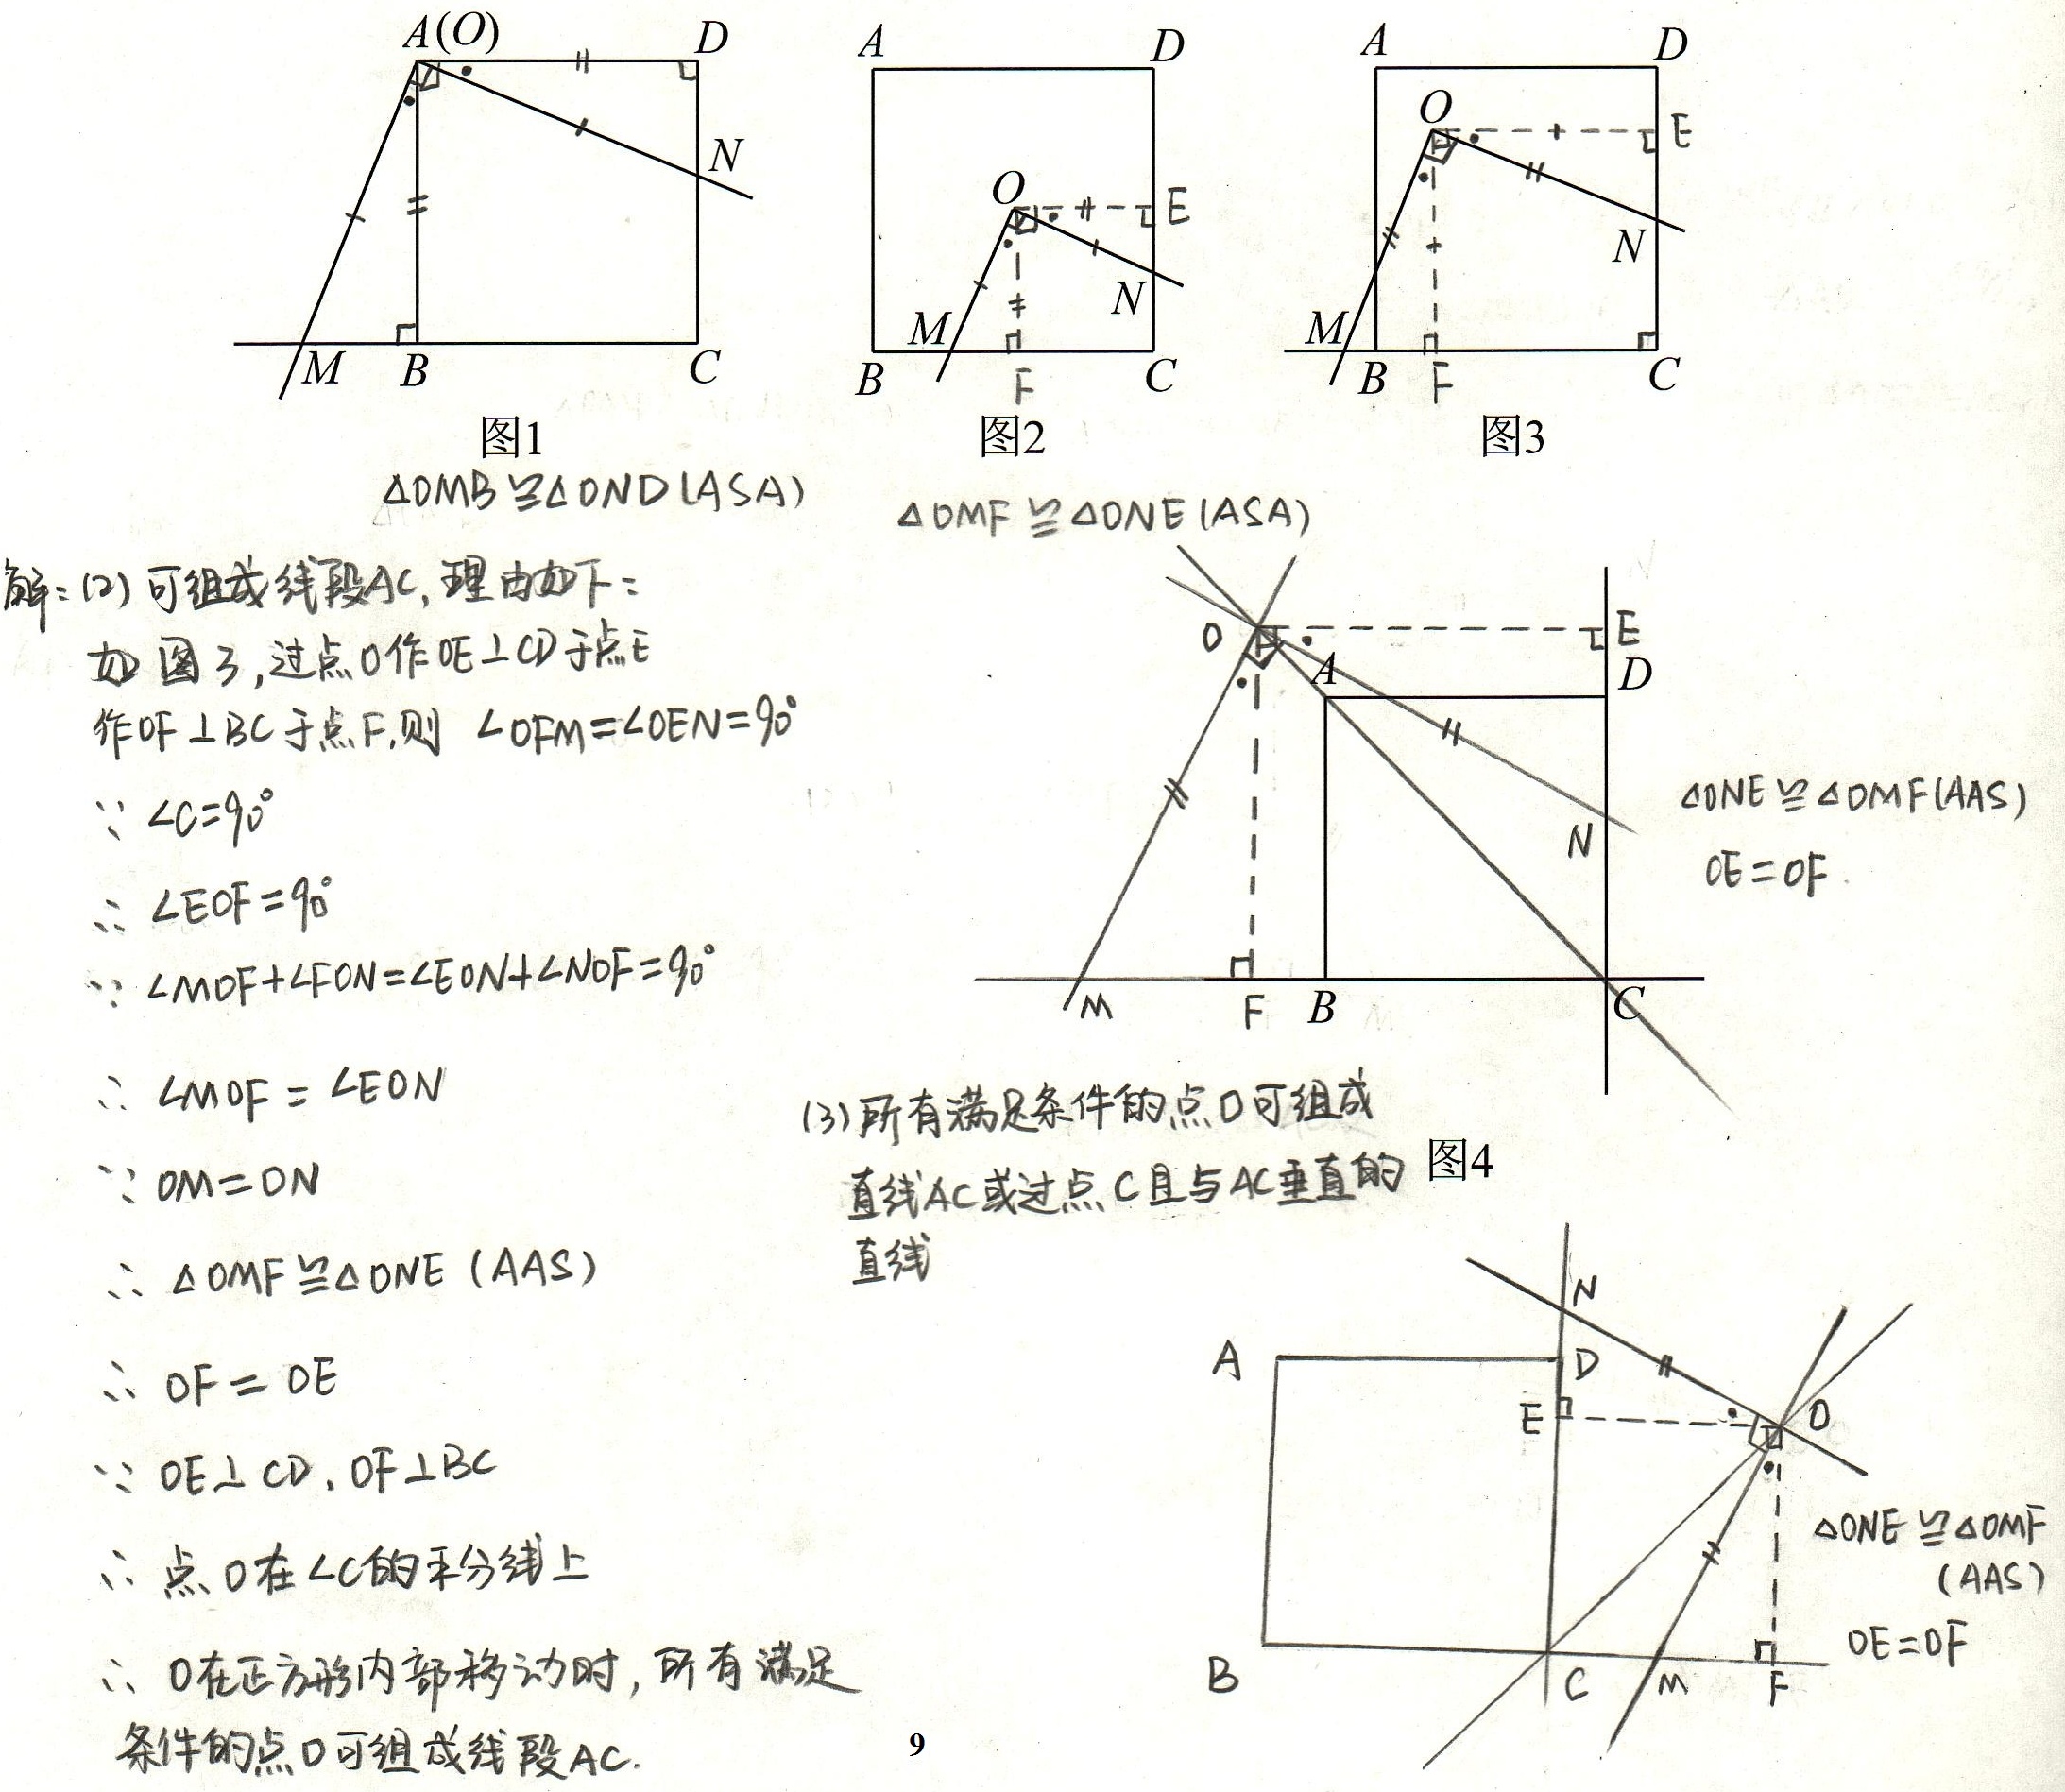 A(O)
D
N
M
B
C
图1
A
D
O
E
N
M
B
F
C
图2
A
D
O
E
N
M
B
F
C
图3
△OMB≌△OND(ASA)
△OMF≌△ONE(ASA)
解:(2)可组成线段AC,理由如下:
如图3,过点O作OE⊥CD于点E
作OF⊥BC于点F,则 ∠OFM=∠OEN=90°
∵ ∠C=90°
∴ ∠EOF=90°
∵ ∠MOF+∠FON=∠EON+∠NOF=90°
∴ ∠MOF=∠EON
∵ OM=ON
∴ △OMF≌△ONE(AAS)
∴ OF=OE
∵ OE⊥CD,OF⊥BC
∴ 点O在∠C的平分线上
∴ O在正方形内部移动时,所有满足
条件的点O可组成线段AC.
O
E
A
D
N
M
F
B
C
△ONE≌△OMF(AAS)
OE=OF
图4
(3)所有满足条件的点O可组成
直线AC或过点C且与AC垂直的
直线
N
A
D
E
O
B
C
M
F
△ONE≌△OMF
(AAS)
OE=OF
9